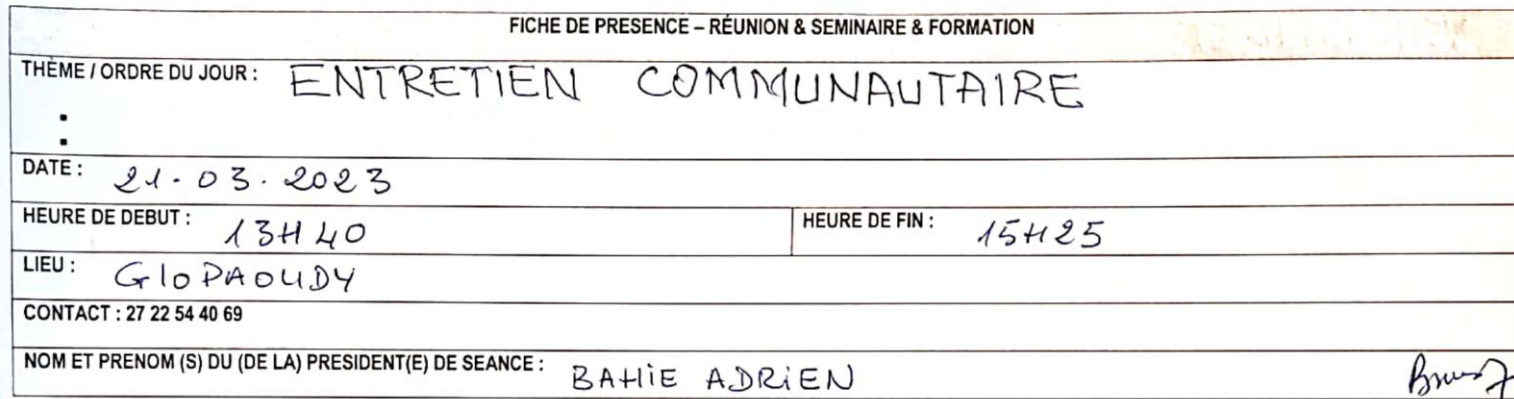 FICHE DE PRESENCE – RÉUNION & SEMINAIRE & FORMATION
THÈME / ORDRE DU JOUR : ENTRETIEN COMMUNAUTAIRE
DATE : 21.03.2023
HEURE DE DEBUT : 13H40 HEURE DE FIN : 15H25
LIEU : GloPAOUDY
CONTACT : 27 22 54 40 69
NOM ET PRENOM (S) DU (DE LA) PRESIDENT(E) DE SEANCE : BAHiE ADRiEN